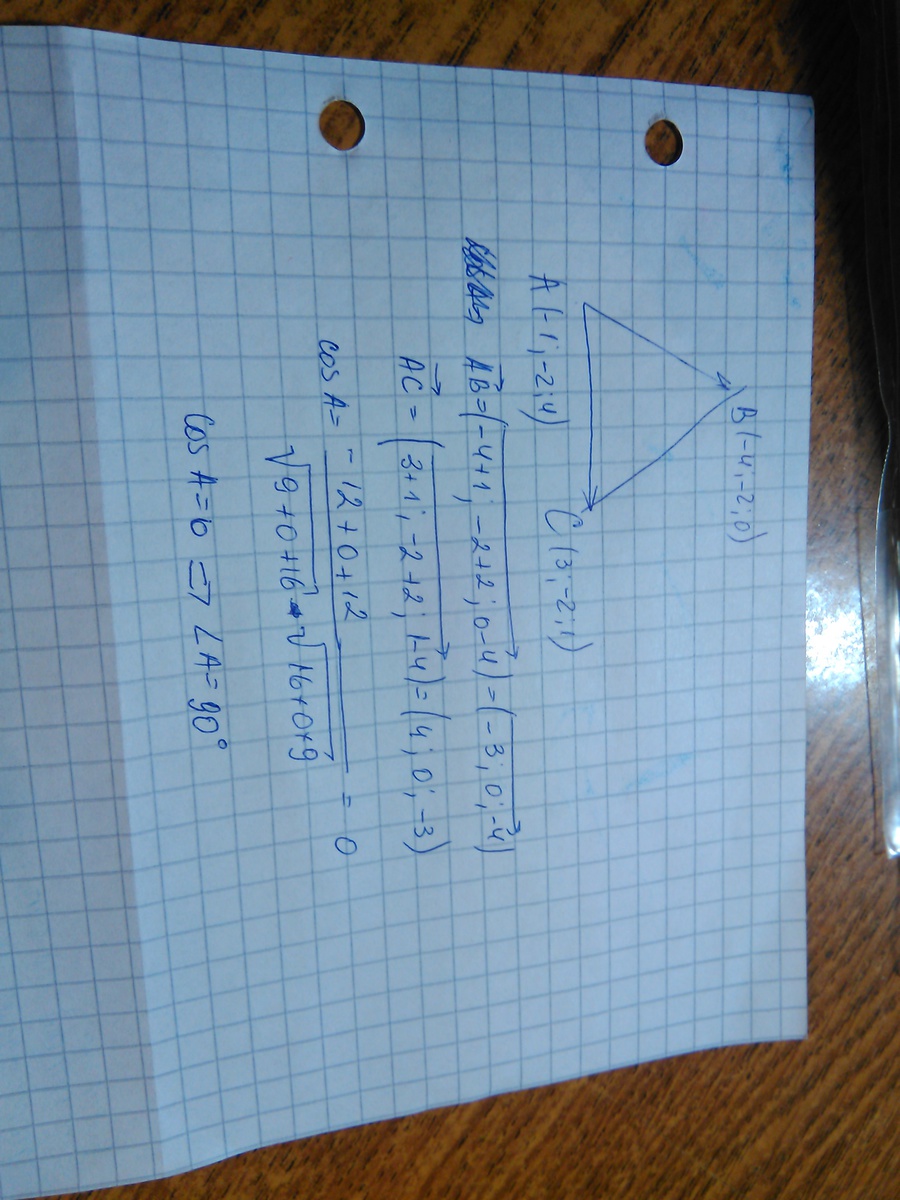 B (-4; -2; 0)
A (-1; -2; 4) C (3; -2; 1)
AB = (-4+1; -2+2; 0-4) = (-3; 0; -4)
AC = (3+1; -2+2; 1-4) = (4; 0; -3)
cos A = (-12+0+12) / (√9+0+16 · √16+0+9) = 0
cos A = 0 => ∠A = 90°